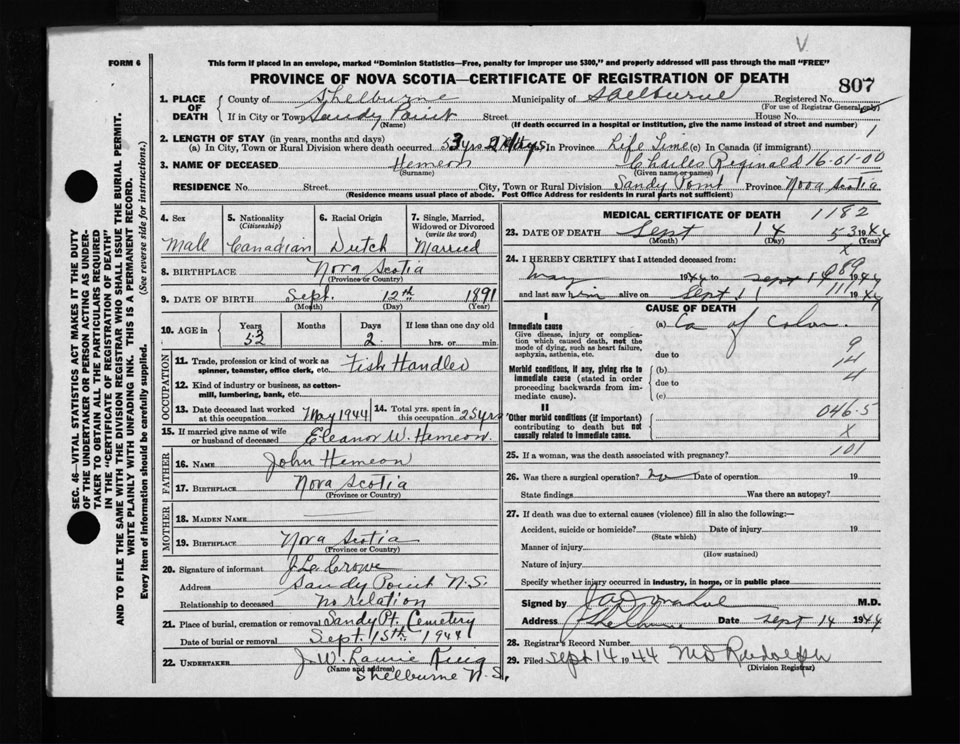 V
FORM 6
This form if placed in an envelope, marked "Dominion Statistics—Free, penalty for improper use $300," and properly addressed will pass through the mail "FREE"
PROVINCE OF NOVA SCOTIA—CERTIFICATE OF REGISTRATION OF DEATH
807
1. PLACE OF DEATH
County of Shelburne Municipality of Shelburne Registered No.
(For use of Registrar General only)
If in City or Town Sandy Point Street House No.
(Name) (If death occurred in a hospital or institution, give the name instead of street and number) 1
2. LENGTH OF STAY (in years, months and days)
(a) In City, Town or Rural Division where death occurred 53 yrs 2 dys In Province Life Time (c) In Canada (if immigrant)
3. NAME OF DECEASED Hemeon Reginald 16-01-00
(Surname) (Given name or names)
RESIDENCE No. Street City, Town or Rural Division Sandy Point Province Nova Scotia
(Residence means usual place of abode. Post Office Address for residents in rural parts not sufficient)
4. Sex Male
5. Nationality (Citizenship) Canadian
6. Racial Origin Dutch
7. Single, Married, Widowed or Divorced (write the word) Married
8. BIRTHPLACE Nova Scotia
(Province or Country)
9. DATE OF BIRTH Sept. 12th 1891
(Month) (Day) (Year)
10. AGE in Years Months Days If less than one day old
53 2 hrs. or min.
OCCUPATION
11. Trade, profession or kind of work as spinner, teamster, office clerk, etc. Fish Handler
12. Kind of industry or business, as cotton-mill, lumbering, bank, etc.
13. Date deceased last worked at this occupation May 1944
14. Total yrs. spent in this occupation 25 yrs
15. If married give name of wife or husband of deceased Eleanor W. Hemeon.
FATHER
16. NAME John Hemeon
17. BIRTHPLACE Nova Scotia
(Province or Country)
MOTHER
18. MAIDEN NAME
19. BIRTHPLACE Nova Scotia
(Province or Country)
20. Signature of informant Crowe
Address Sandy Point N.S.
Relationship to deceased no relation
21. Place of burial, cremation or removal Sandy Pt. Cemetery
Date of burial or removal Sept. 15th 1944
22. UNDERTAKER J. W. Laurie King
(Name and address)
Shelburne N.S.
MEDICAL CERTIFICATE OF DEATH
1182
23. DATE OF DEATH Sept 14 1944
(Month) (Day) (Year)
53
X
24. I HEREBY CERTIFY that I attended deceased from:
May 1944 to Sept 14 1944
089
and last saw him alive on Sept 11 1944
111
CAUSE OF DEATH
I
Immediate cause
Give disease, injury or complication which caused death, not the mode of dying, such as heart failure, asphyxia, asthenia, etc.
(a) Ca of Colon.
due to 9
14
Morbid conditions, if any, giving rise to immediate cause (stated in order proceeding backwards from immediate cause).
(b)
due to 4
(c)
II
Other morbid conditions (important) contributing to death but not causally related to immediate cause.
046-5
X
101
25. If a woman, was the death associated with pregnancy?
26. Was there a surgical operation? no Date of operation 19
State findings Was there an autopsy?
27. If death was due to external causes (violence) fill in also the following:—
Accident, suicide or homicide? Date of injury 19
(State which)
Manner of injury
(How sustained)
Nature of injury
Specify whether injury occurred in industry, in home, or in public place
Signed by M.D.
Address Shelburne Date Sept 14 1944
28. Registrar's Record Number
29. Filed Sept 14 1944 M D Rudolph
(Division Registrar)
SEC. 46—VITAL STATISTICS ACT MAKES IT THE DUTY
OF THE UNDERTAKER OR PERSON ACTING AS UNDERTAKER TO OBTAIN ALL THE PARTICULARS REQUIRED
IN THE "CERTIFICATE OF REGISTRATION OF DEATH"
AND TO FILE THE SAME WITH THE DIVISION REGISTRAR WHO SHALL ISSUE THE BURIAL PERMIT.
WRITE PLAINLY WITH UNFADING INK. THIS IS A PERMANENT RECORD.
Every item of information should be carefully supplied. (See reverse side for instructions.)